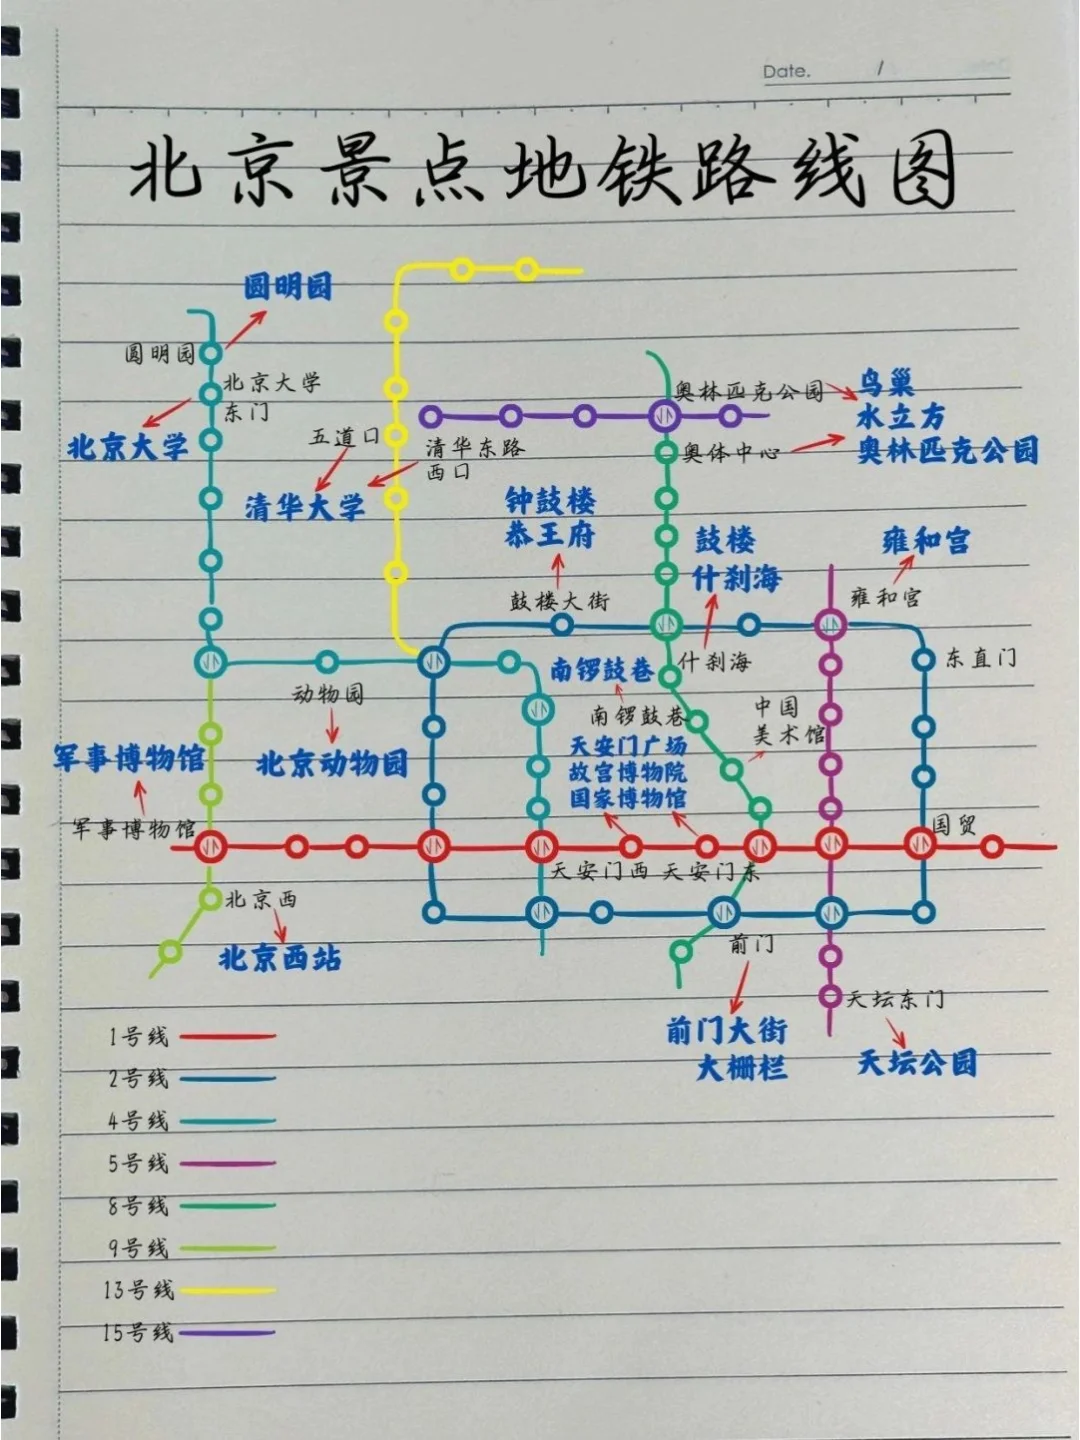 Date. /
北京景点地铁路线图
圆明园
圆明园
北京大学
东门
北京大学
五道口
清华东路
西口
清华大学
奥林匹克公园
鸟巢
水立方
奥体中心
奥林匹克公园
钟鼓楼
恭王府
鼓楼大街
鼓楼
什刹海
什刹海
雍和宫
雍和宫
东直门
动物园
北京动物园
南锣鼓巷
南锣鼓巷
中国
美术馆
天安门广场
故宫博物院
国家博物馆
军事博物馆
军事博物馆
天安门西
天安门东
国贸
北京西
北京西站
前门
前门大街
大栅栏
天坛东门
天坛公园
1号线
2号线
4号线
5号线
8号线
9号线
13号线
15号线